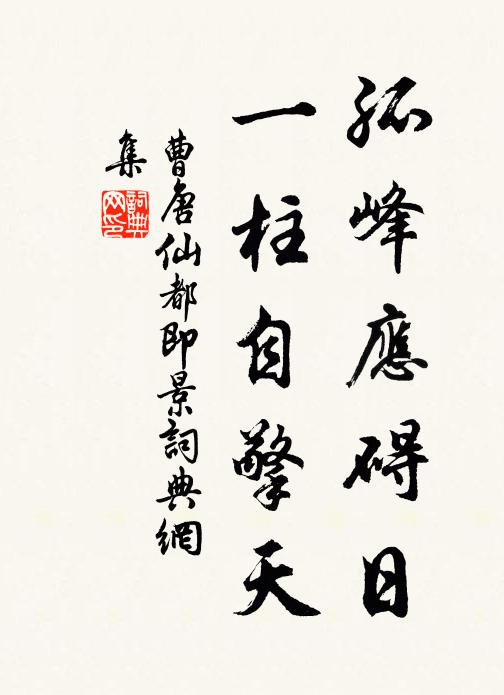 孤峰應碍日
一柱自擎天
曹唐仙都即景詞典網
集
詞典
网印